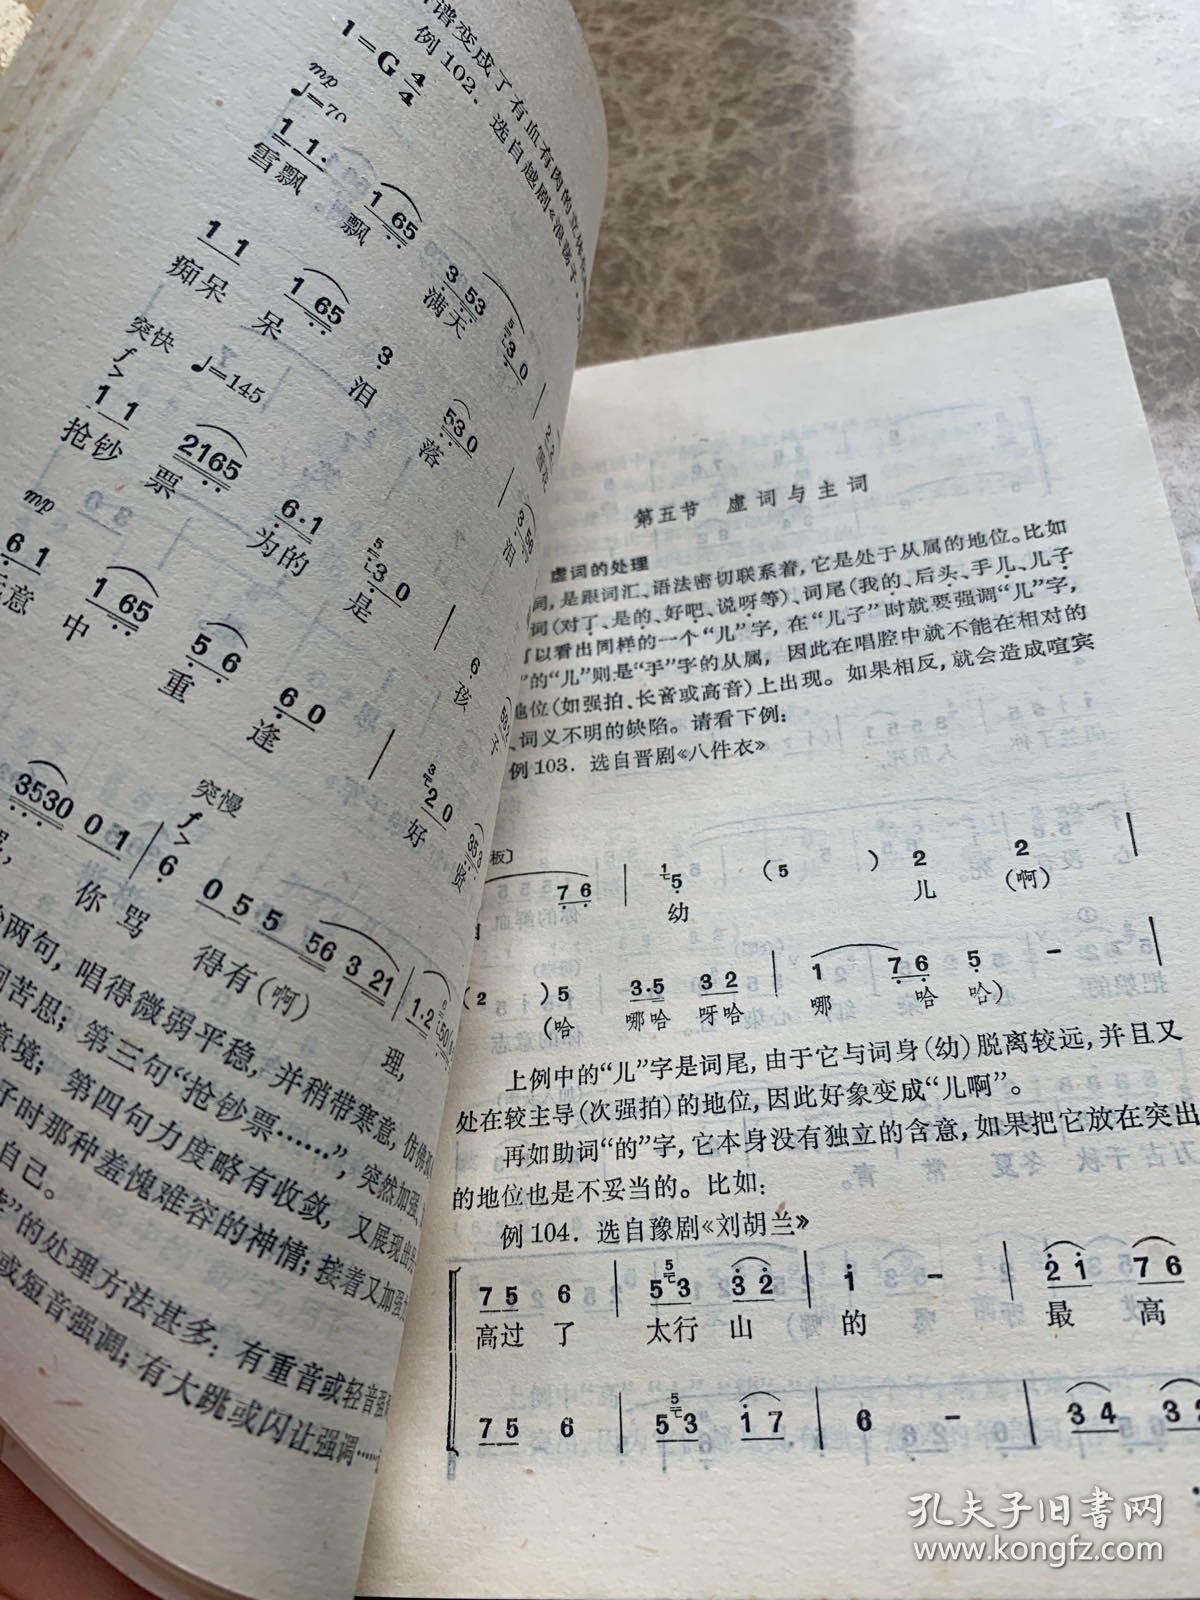 谱变成了有血有肉的立体
例102．选自越剧《浪荡子·
1=G 4/4
mp
♩=70
1 1. 1 65 3 53 5 3 0
雪飘 飘 满天
1 1 1 65 3. 530
痴呆 呆 泪 落 泪
突快 ♩=145
f
1 1 2165 6·1 5 3 0 6.
抢钞 票 为的 是 孩 子
mp
6 1 1 65 5 6 6 0 3 2 0
意 中 重 逢 好 贤
突慢
f
3530 0 0 1 6 0 5 5 56 3 21 1·2
你 骂 得有(啊) 理，
两句，唱得微弱平稳，并稍带寒意，仿佛
苦思；第三句“抢钞票……”，突然加强、
意境；第四句力度略有收敛，又展现出
子时那种羞愧难容的神情；接着又加强
自己。
”的处理方法甚多：有重音或轻音强
或短音强调；有大跳或闪让强调……
第五节 虚词与主词
虚词的处理
词，是跟词汇、语法密切联系着，它是处于从属的地位。比如
词(对了、是的、好吧、说呀等)、词尾(我的、后头、手儿、儿子
以看出同样的一个“儿”字，在“儿子”时就要强调“儿”字，
”的“儿”则是“手”字的从属，因此在唱腔中就不能在相对的
地位(如强拍、长音或高音)上出现。如果相反，就会造成喧宾
、词义不明的缺陷。请看下例：
例103．选自晋剧《八件衣》
板〕
7 6 | 1 5 (5 ) 2 2 |
幼 儿 (啊)
(2 ) 5 3·5 3 2 | 1 7 6 5 - |
(哈 哪哈 呀哈 哪 哈 哈)
上例中的“儿”字是词尾，由于它与词身(幼)脱离较远，并且又
处在较主导(次强拍)的地位，因此好象变成“儿啊”。
再如助词“的”字，它本身没有独立的含意，如果把它放在突出
的地位也是不妥当的。比如：
例104．选自豫剧《刘胡兰》
7 5 6 | 5 5 3 3 2 | i - | 2 i 7 6
高过 了 太行 山 的 最 高
7 5 6 | 5 5 3 i 7 | 6 - | 3 4 3 2
孔夫子旧书网
www.kongfz.com